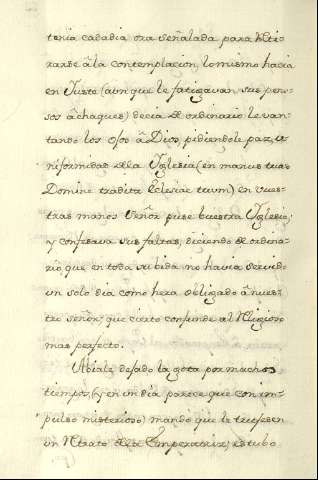 tenia cada dia ora señalada para Reti-
rarse â la contemplacion, lo mismo hacia
en Juste (aunque le fatigavan sus peno-
sos âchaques) decia de ordinario levan-
tando los ojos â Dios, pidiendole paz, u-
niformidad de la Yglesia (en manus tuas
Domine tradita Eclesiae tuum) en vues-
tras manos Señor puse buestra Yglesia;
y confesava sus faltas, diciendo de ordina-
rio, que en toda su bida no havia servido
un solo dia como hera obligado â nues-
tro señor; que cierto confunde al Religioso
mas perfecto.
Abiale dejado la gota por muchos
tiempos, (y en un dia parece que con im-
pulso misterioso) mando que le trujesen
un Retrato de la Emperatriz; estubo